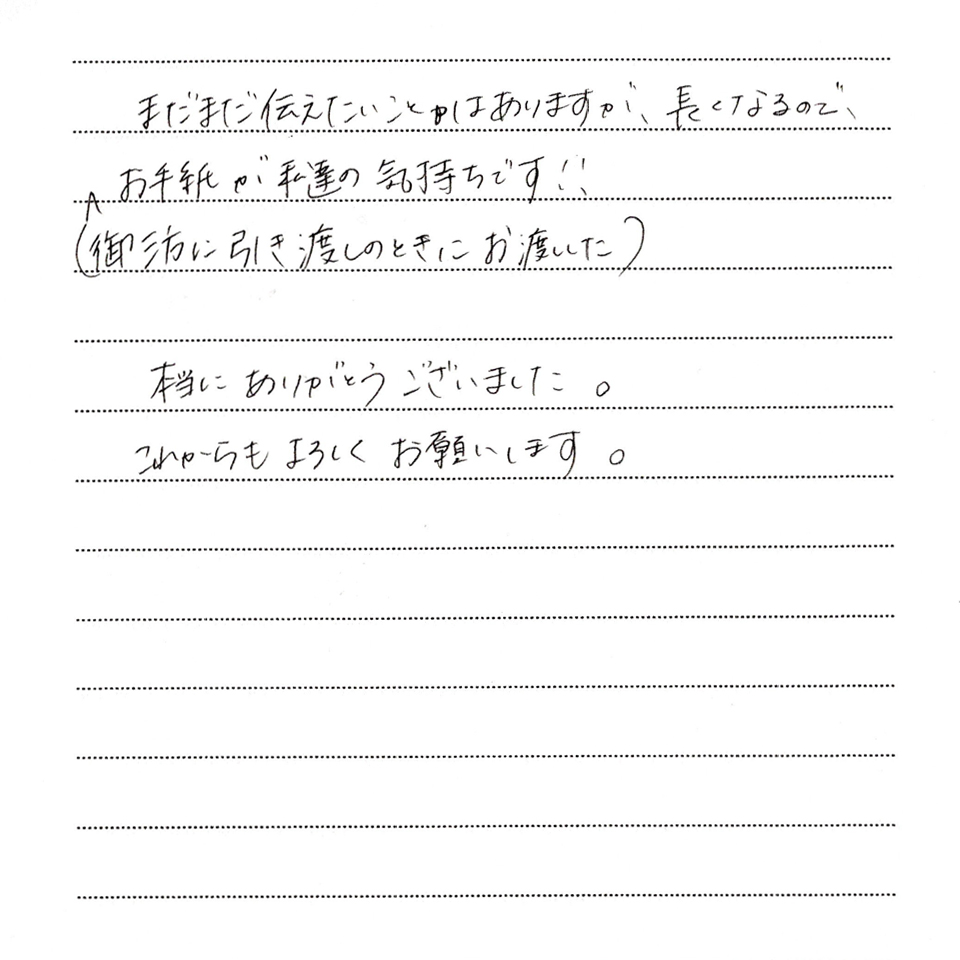 まだまだ伝えたいことがはありますが、長くなるので、
お手紙が私達の気持ちです!!
(御三方に引き渡しのときにお渡しした)
本当にありがとうございました。
これからもよろしくお願いします。